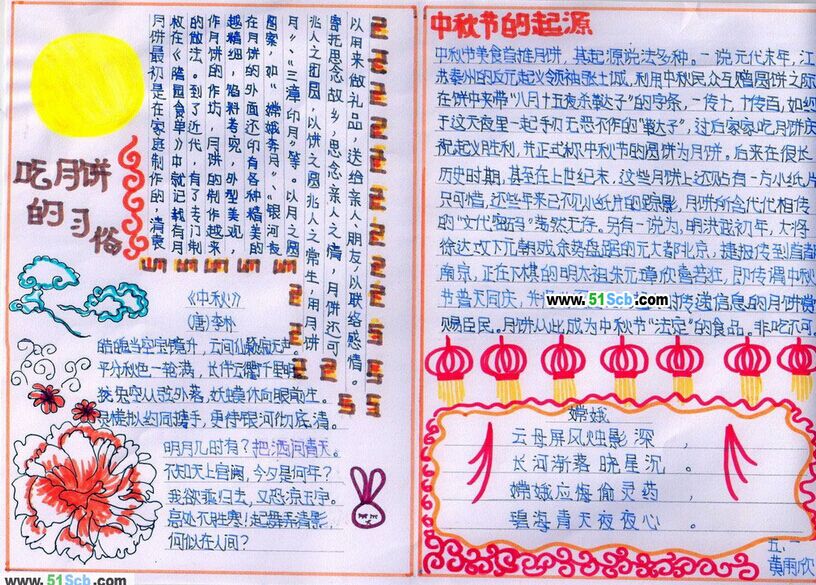 吃月饼
的习俗
月饼最初是在家庭制作的，清袁
枚在《随园食单》中就记载有月饼
的做法。到了近代，有了专门制
作月饼的作坊，月饼的制作越来
越精细，馅料考究，外型美观，
在月饼的外面还印有各种精美的
图案，如“嫦娥奔月”、“银河夜
月”、“三潭印月”等。以月之圆
兆人之团圆，以饼之圆兆人之常生，用月饼
寄托思念故乡，思念亲人之情，月饼还可
以用来做礼品，送给亲人、朋友，以联络感情。
《中秋》
（唐）李朴
皓魄当空宝镜升，云间仙籁寂无声。
平分秋色一轮满，长伴云衢千里明。
狡兔空从弦外落，妖蟆休向眼前生。
灵槎拟约同携手，更待银河彻底清。
明月几时有？把酒问青天。
不知天上宫阙，今夕是何年？
我欲乘归去，又恐琼楼玉宇。
高处不胜寒！起舞弄清影，
何似在人间？
中秋节的起源
中秋节美食首推月饼，其起源说法多种。一说元代末年，江
苏泰州的反元起义领袖张士诚，利用中秋民众互赠圆饼之际
在饼中夹带“八月十五夜杀鞑子”的字条，一传十、十传百，如约
于这天夜里一起手刃无恶不作的“鞑子”，过后家家吃月饼庆
祝起义胜利，并正式称中秋节的圆饼为月饼。后来在很长
历史时期，甚至在上世纪末，这些月饼上还贴有一方小纸片
只可惜，还些年来已不见小纸片的踪影，月饼所含代代相传
的“文代密码”荡然无存。另有一说为，明洪武初年，大将
徐达攻下元朝残余势力盘踞的元大都北京，捷报传到首都
南京，正在下棋的明太祖朱元璋欣喜若狂，即传谕中秋
节普天同庆，传递信息的月饼赏
赐臣民。月饼从此成为中秋节“法定”的食品。非吃不可。
www.51Scb.com
嫦娥
云母屏风烛影深，
长河渐落晓星沉。
嫦娥应悔偷灵药，
碧海青天夜夜心。
五、一
黄雨欣
www.51Scb.com